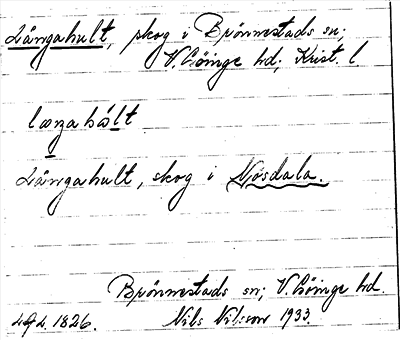 Långahult, skog i Brönnestads sn;
V. Göinge hd; Krist. l
Långahult, skog i Nösdala.
Brönnestads sn; V. Göinge hd.
1826. Nils Nilsson 1933